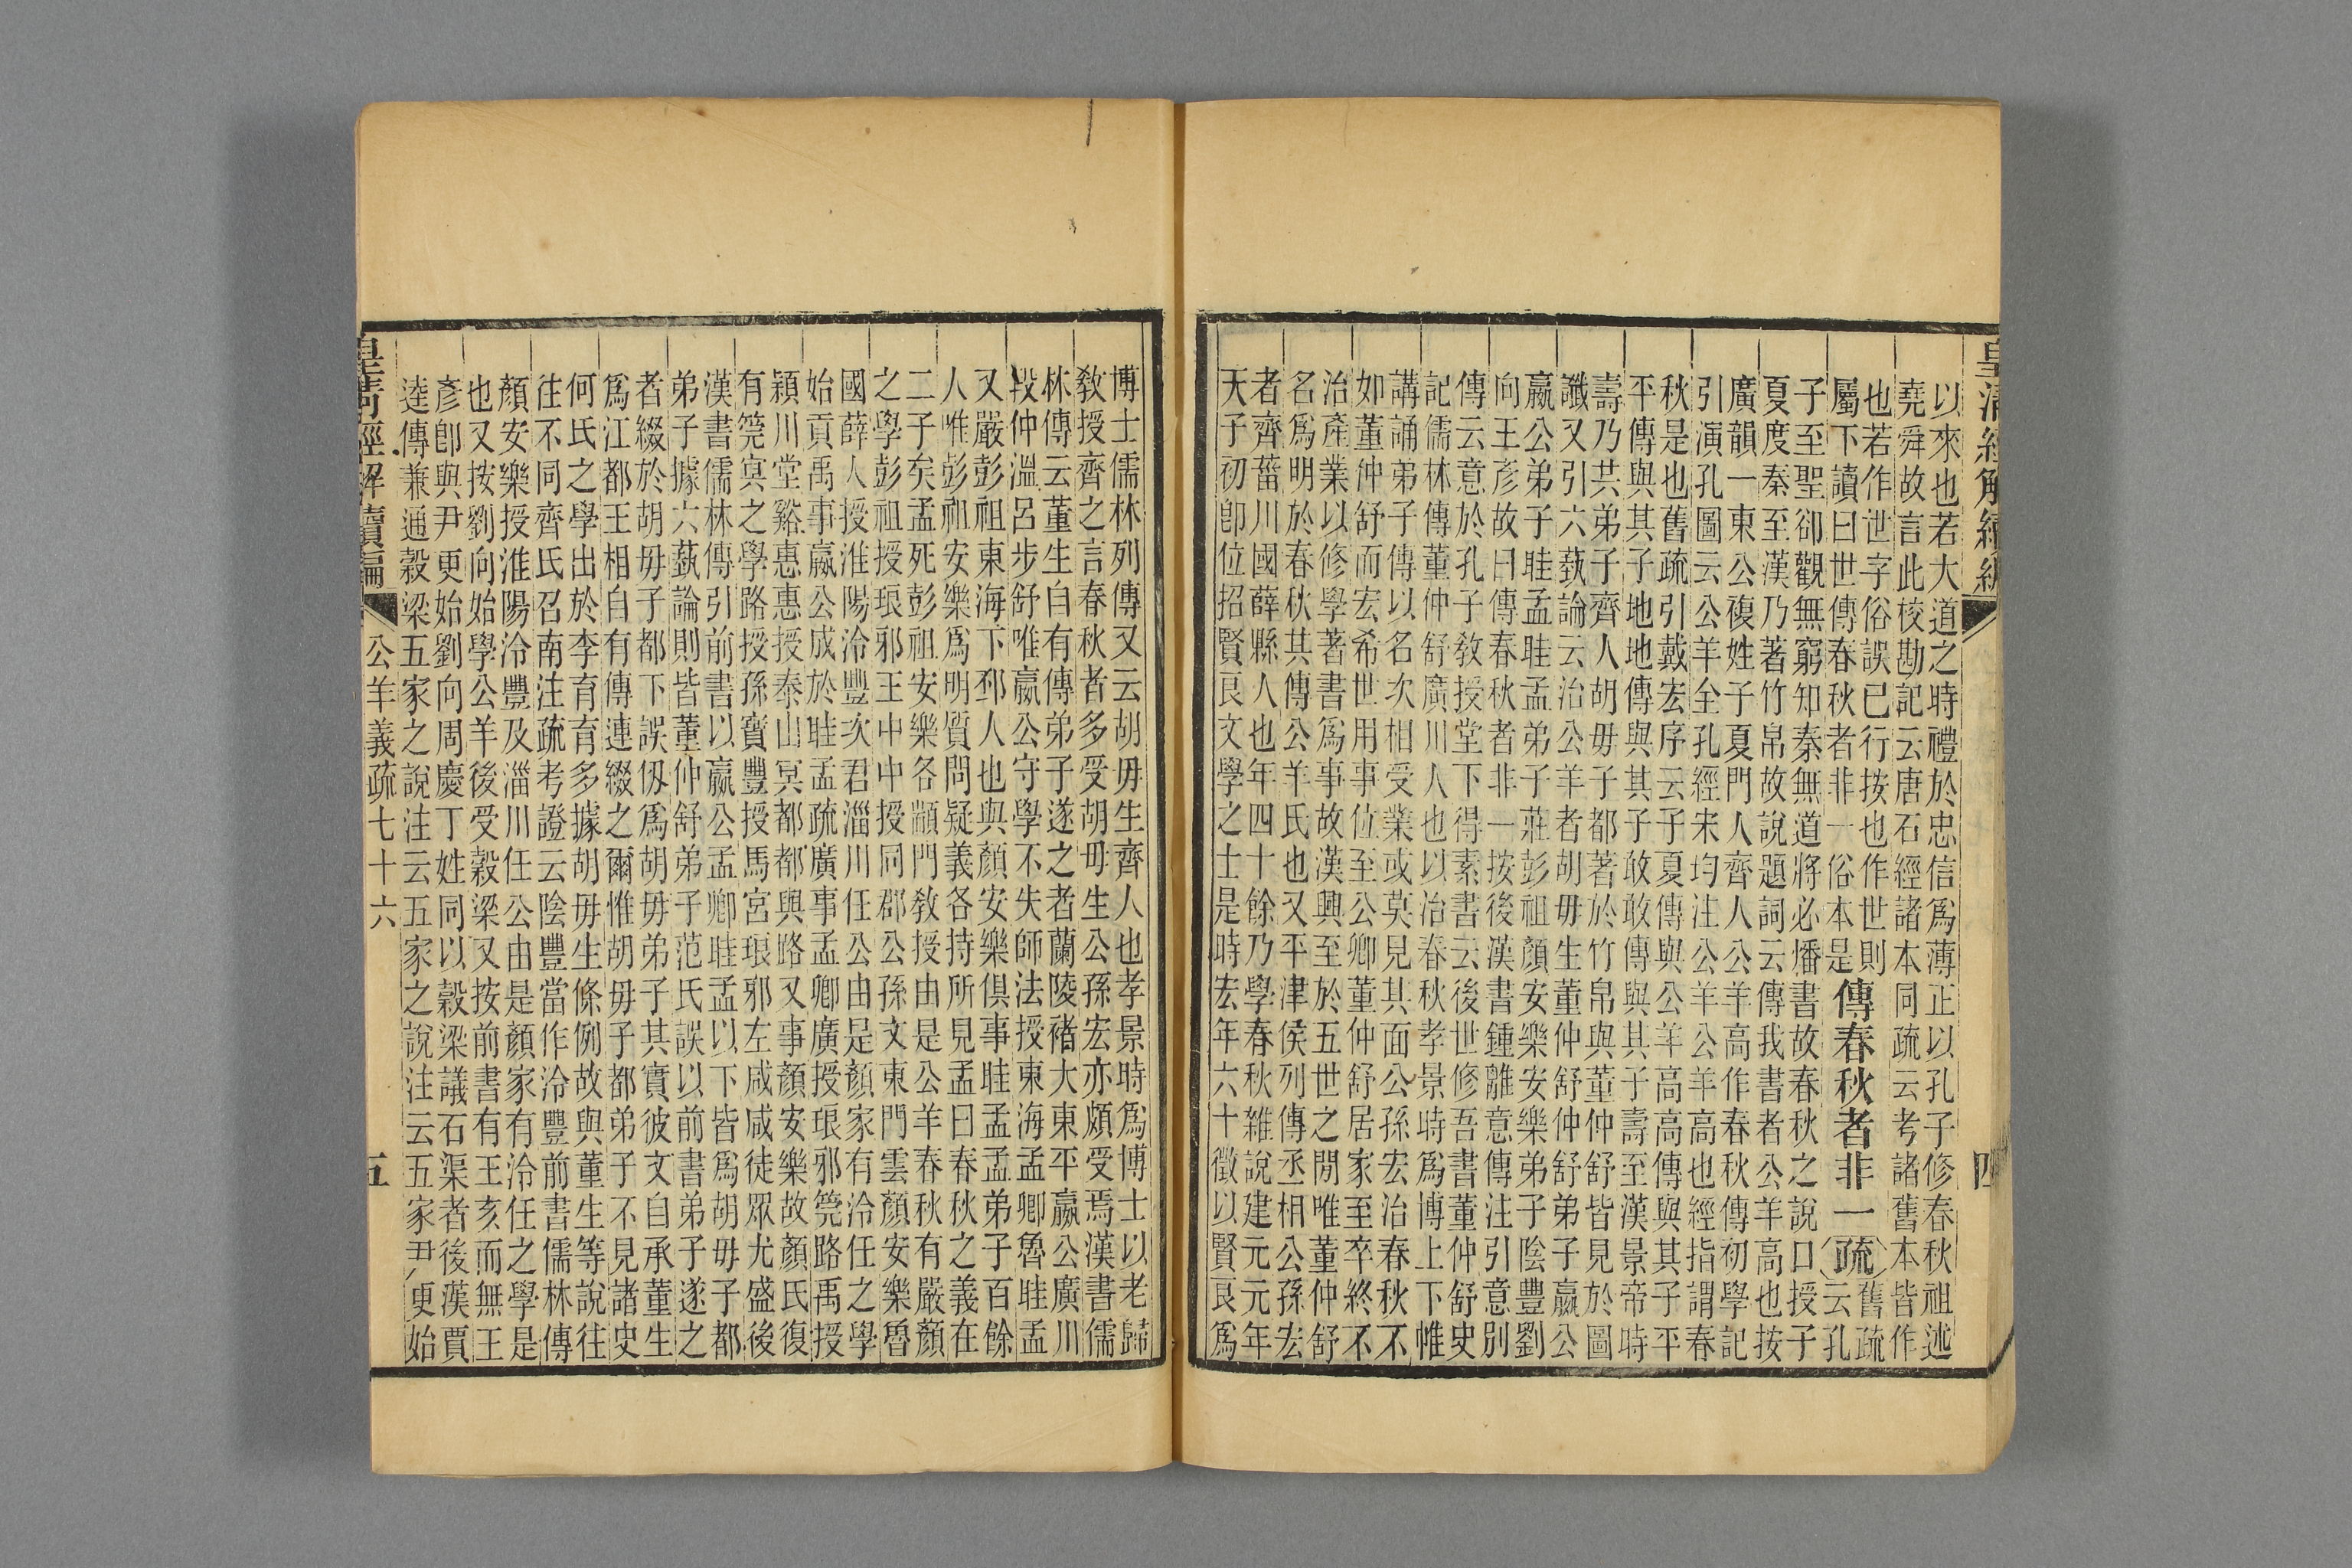 皇清經解續編
四
以來也若大道之時禮於忠信爲薄正以孔子修春秋祖述
堯舜故言此校勘記云唐石經諸本同疏云考諸舊本皆作
也若作世字俗誤已行按也作世則
屬下讀曰世傳春秋者非一俗本是
傳春秋者非一
疏
舊疏
云孔
子至聖卻觀無窮知秦無道將必燔書故春秋之說口授子
夏度秦至漢乃著竹帛故說題詞云傳我書者公羊高也按
廣韻一東公複姓子夏門人齊人公羊高作春秋傳初學記
引演孔圖云公羊全孔經宋均注公羊公羊高也經指謂春
秋是也舊疏引戴宏序云子夏傳與公羊高高傳與其子平
平傳與其子地地傳與其子敢敢傳與其子壽至漢景帝時
壽乃共弟子齊人胡毋子都著於竹帛與董仲舒皆見於圖
讖又引六藝論云治公羊者胡毋生董仲舒仲舒弟子嬴公
嬴公弟子眭孟眭孟弟子莊彭祖顏安樂安樂弟子陰豐劉
向王彥故曰傳春秋者非一按後漢書鍾離意傳注引意別
傳云意於孔子敎授堂下得素書云後世修吾書董仲舒史
記儒林傳董仲舒廣川人也以治春秋孝景時爲博上下帷
講誦弟子傳以名次相受業或莫見其面公孫宏治春秋不
如董仲舒而宏希世用事位至公卿董仲舒居家至卒終不
治產業以修學著書爲事故漢興至於五世之閒唯董仲舒
名爲明於春秋其傳公羊氏也又平津侯列傳丞相公孫宏
者齊菑川國薛縣人也年四十餘乃學春秋雜說建元元年
天子初卽位招賢良文學之士是時宏年六十徵以賢良爲
博士儒林列傳又云胡毋生齊人也孝景時爲博士以老歸
敎授齊之言春秋者多受胡毋生公孫宏亦頗受焉漢書儒
林傳云董生白有傳弟子遂之者蘭陵褚大東平嬴公廣川
段仲溫呂步舒唯嬴公守學不失師法授東海孟卿魯眭孟
又嚴彭祖東海下邳人也與顏安樂俱事眭孟孟弟子百餘
人唯彭祖安樂爲明質問疑義各持所見孟曰春秋之義在
二子矣孟死彭祖安樂各顓門敎授由是公羊春秋有嚴顏
之學彭祖授琅邪王中中授同郡公孫文東門雲顏安樂魯
國薛人授淮陽泠豐次君淄川任公由是顏家有泠任之學
始貢禹事嬴公成於眭孟疏廣事孟卿廣授琅邪筦路禹授
穎川堂谿惠惠授泰山冥都都與路又事顏安樂故顏氏復
有筦冥之學路授孫寶豐授馬宮琅邪左咸咸徒眾尤盛後
漢書儒林傳引前書以嬴公孟卿眭孟以下皆爲胡毋子都
弟子據六藝論則皆董仲舒弟子范氏誤以前書弟子遂之
者綴於胡毋子都下誤仭爲胡毋弟子其實彼文自承董生
爲江都王相自有傳連綴之爾惟胡毋子都弟子不見諸史
何氏之學出於李育育多據胡毋生條例故與董生等說往
往不同齊氏召南注疏考證云陰豐當作泠豐前書儒林傳
顏安樂授淮陽泠豐及淄川任公由是顏家有泠任之學是
也又按劉向始學公羊後受穀梁又按前書有王亥而無王
彥卽與尹更始劉向周慶丁姓同以穀梁議石渠者後漢賈
逵傳兼通穀梁五家之說注云五家之說注云五家尹更始
皇清經解續編
公羊義疏七十六
五